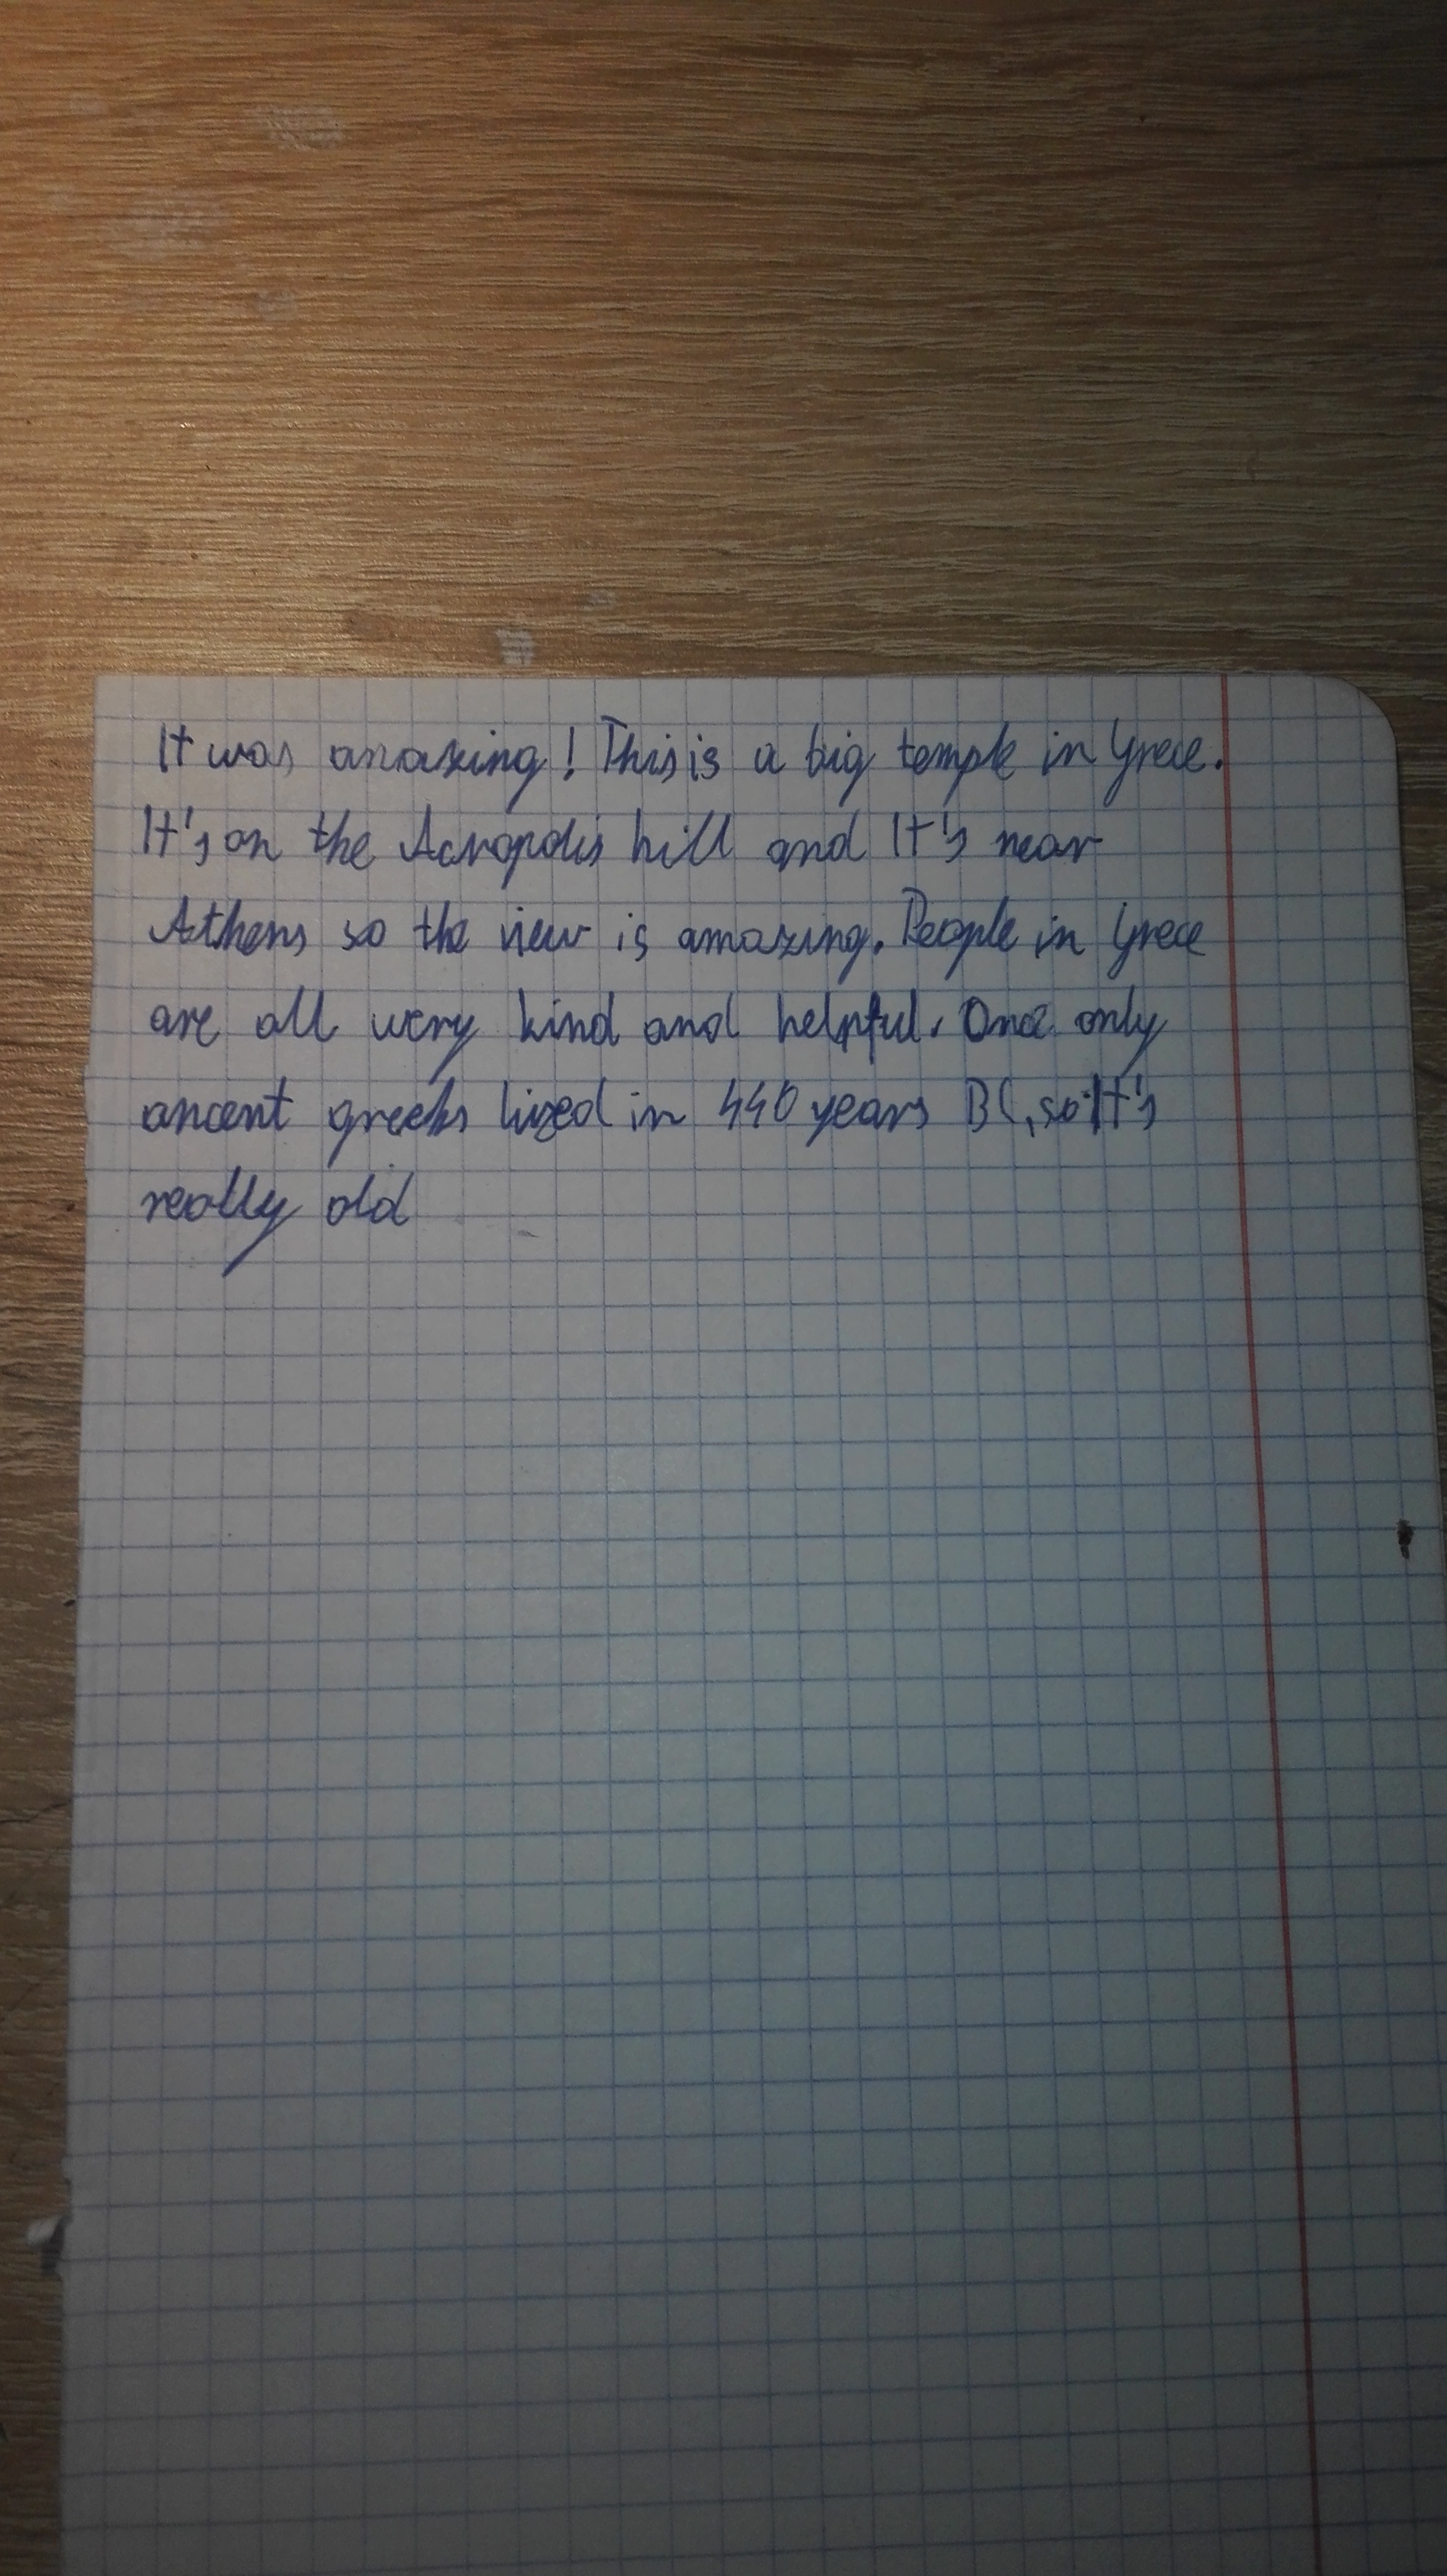 It was amazing! This is a big temple in Grece.
It's on the Acropolis hill and It's near
Athens so the view is amazing. People in Grece
are all very kind and helpful. Once only
ancent greeks lived in 440 years BC, so It's
really old